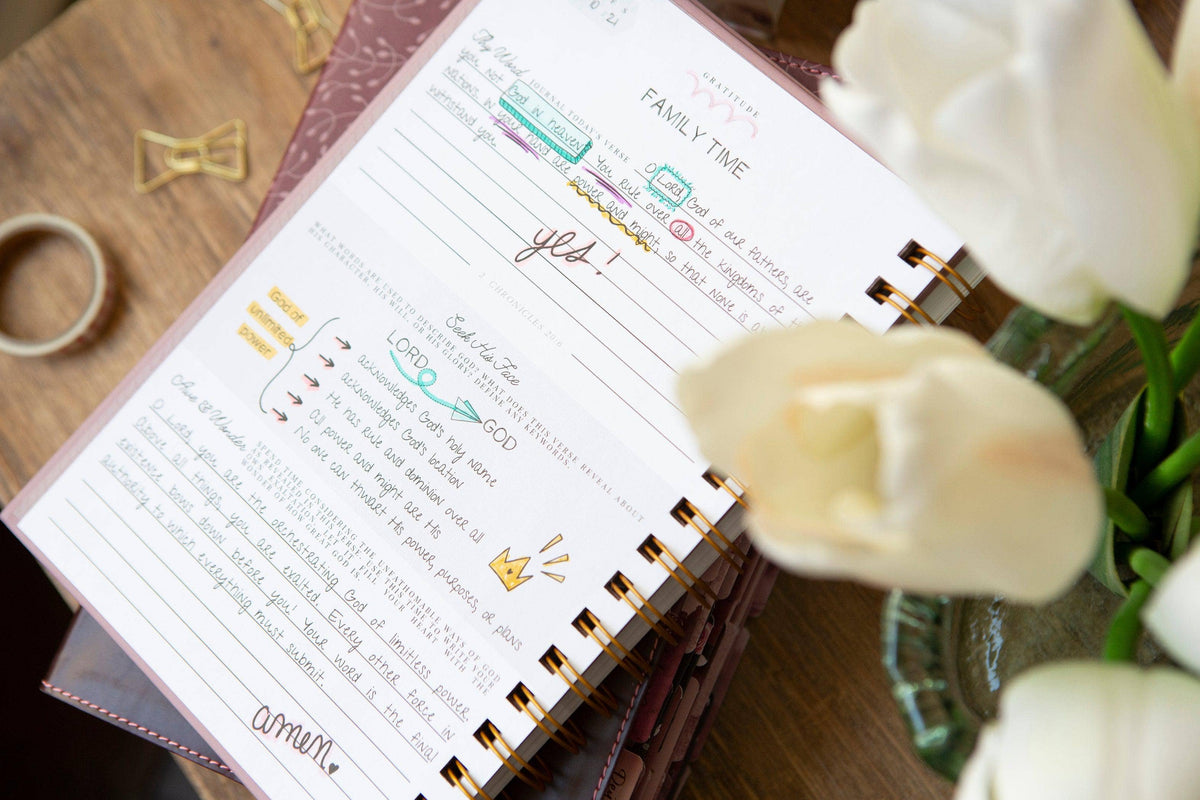 10 21
GRATITUDE
FAMILY TIME
Thy Word JOURNAL TODAY'S VERSE O Lord, God of our fathers, are
you not God in heaven? You rule over all the kingdoms of
nations. In your hand are power and might so that none is
withstand you
yes!
2 CHRONICLES 20:6
Seek His Face
WHAT WORDS ARE USED TO DESCRIBE GOD? WHAT DOES THIS VERSE REVEAL ABOUT
HIS CHARACTER, HIS WILL, OR HIS GLORY? DEFINE ANY KEYWORDS.
LORD
GOD
God of
unlimited
power
→ acknowledges God's holy name
→ acknowledges God's location
→ He has rule and dominion over all
→ All power and might are His
→ No one can thwart His power, purposes, or plans
Awe & Wonder
SPEND TIME CONSIDERING THE UNFATHOMABLE WAYS OF GOD
AS REVEALED IN THIS VERSE. USE THIS TIME TO WRITE YOUR
OWN REVELATION. LET IT FILL YOUR HEART WITH THE
WONDER OF HOW GREAT GOD IS.
O Lord, you are the orchestrating God of limitless power.
Above all things, you are exalted. Every other force in
existence bows down before you! Your word is the final
authority to which everything must submit.
amen.